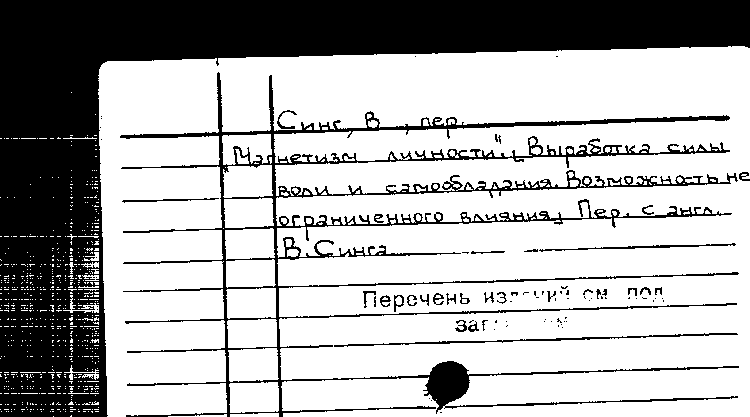 Синг, В , пер.
"Магнетизм личности". [Выработка силы
воли и самообладания. Возможность не
ограниченного влияния] Пер. с англ.
В. Синга
Перечень изданий см под